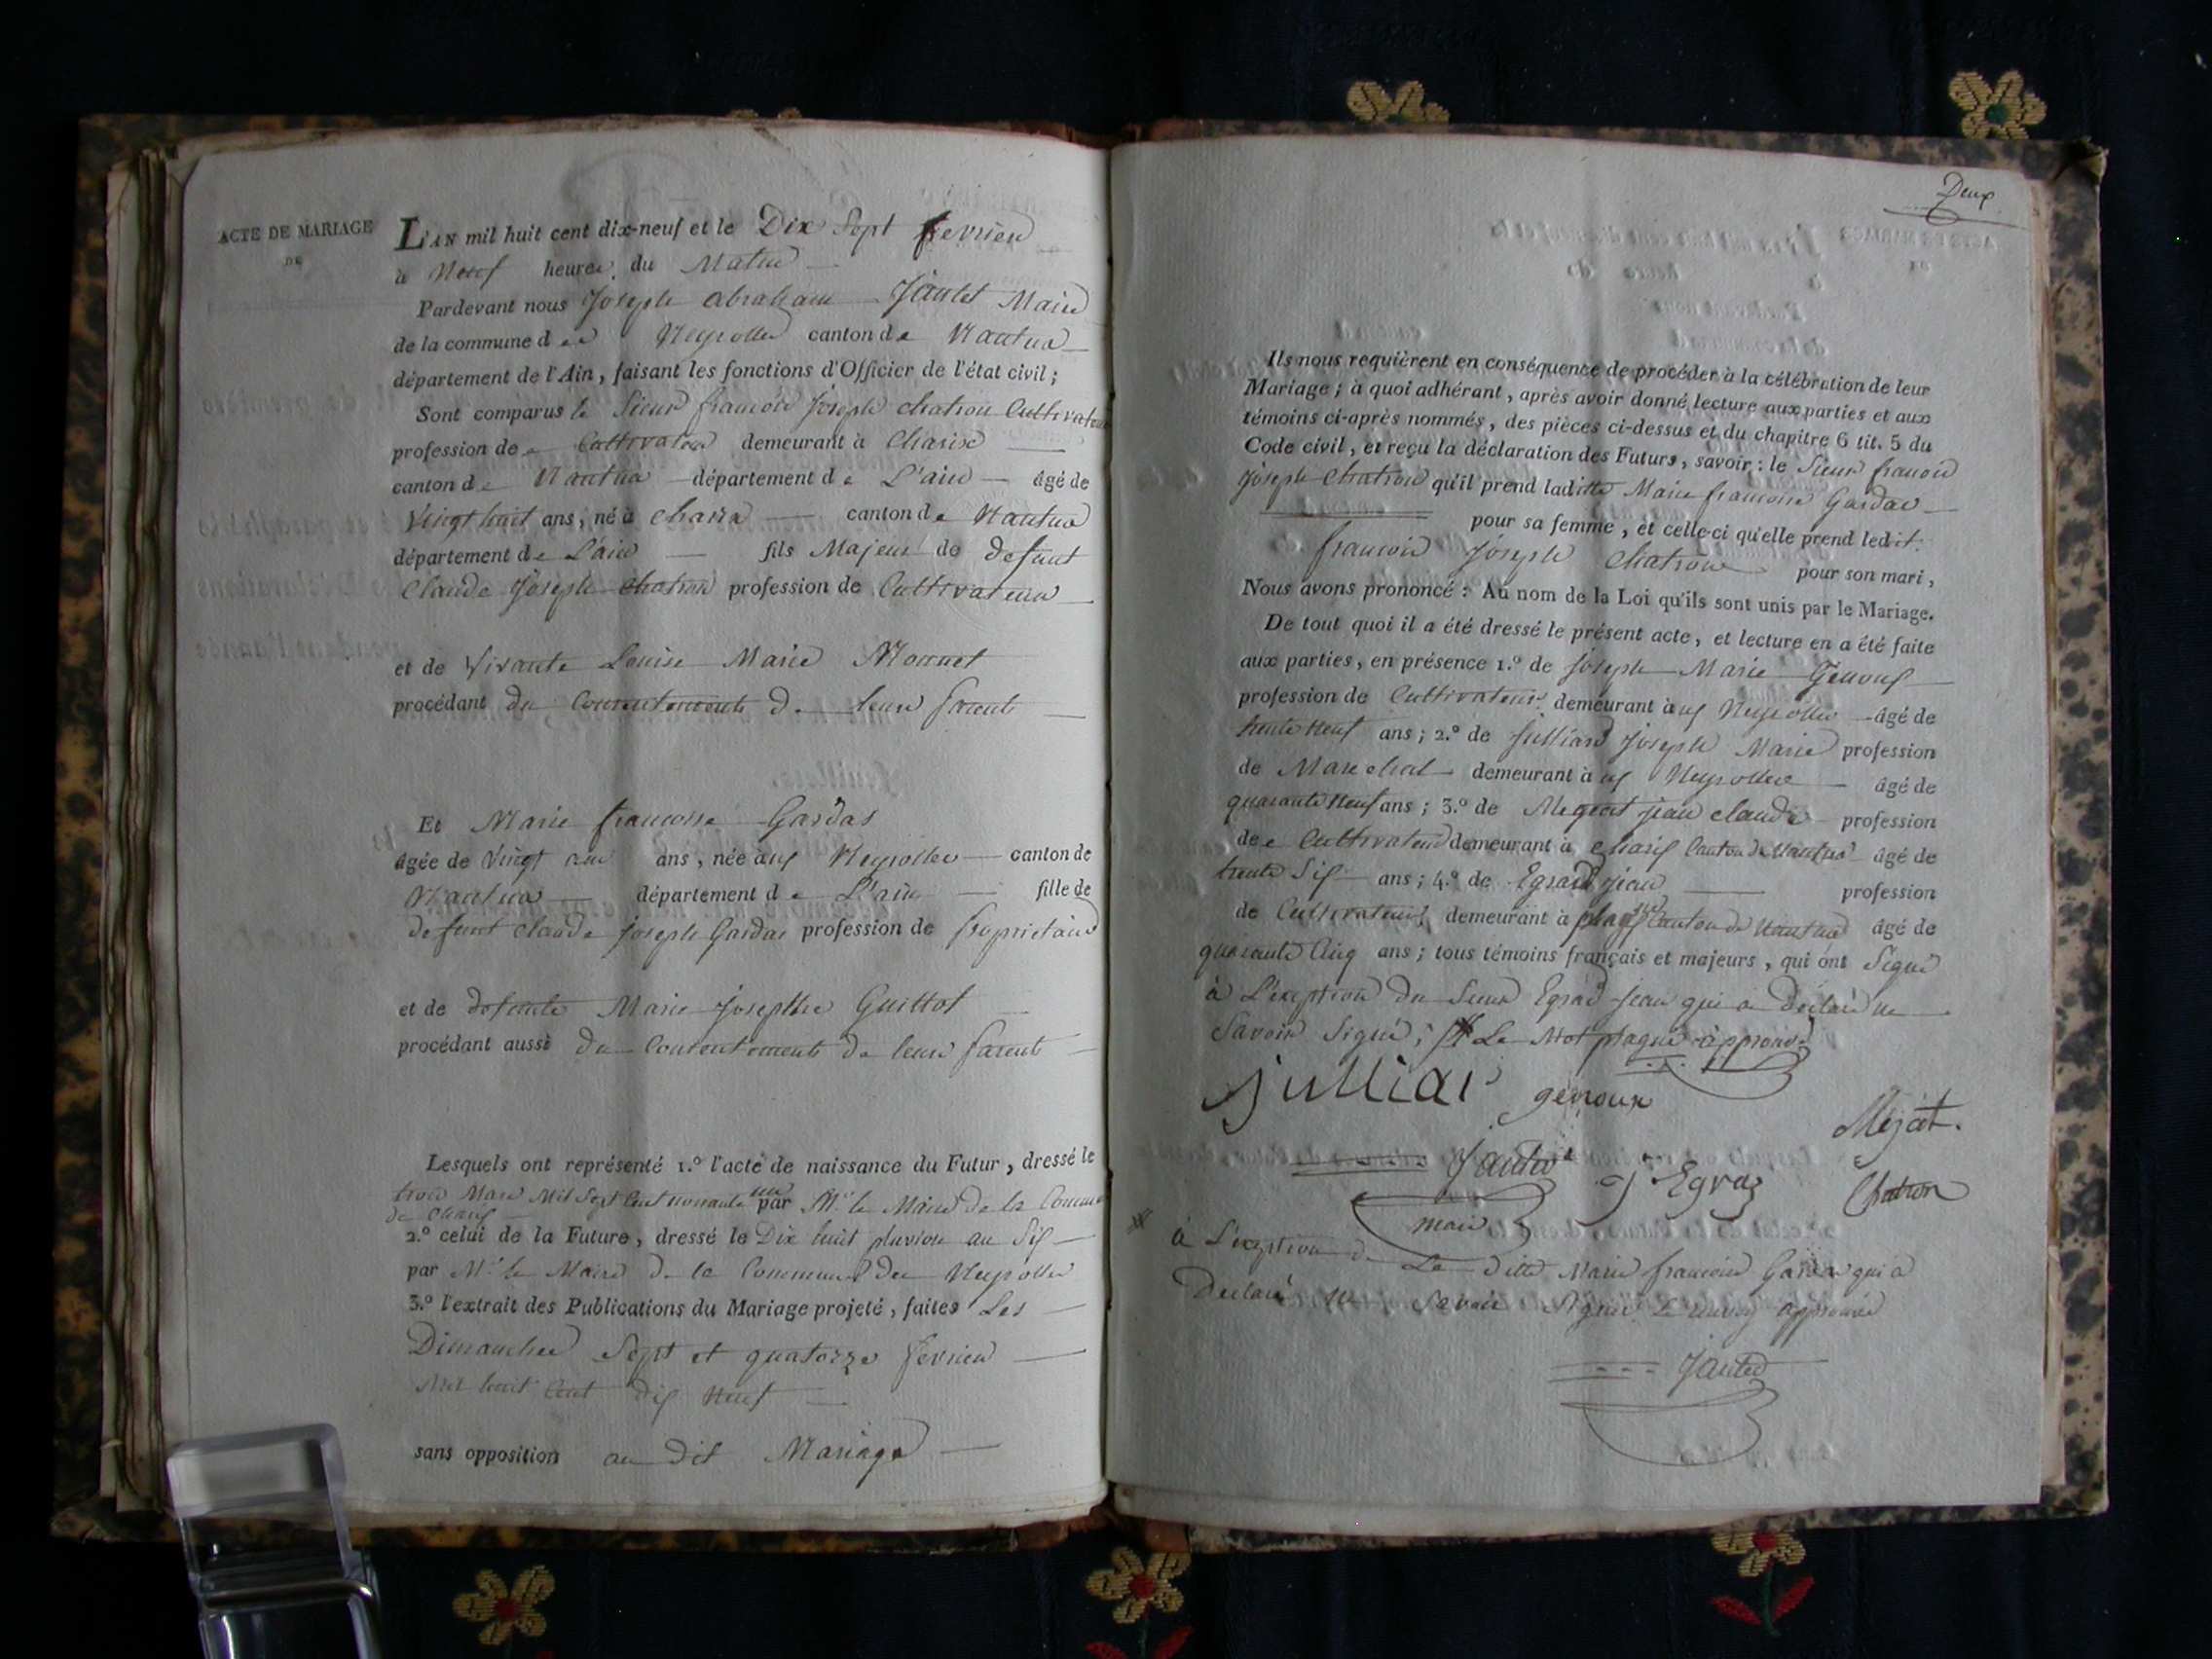 ACTE DE MARIAGE
DE
L'AN mil huit cent dix-neuf et le Dix Sept fevrier
à Neuf heures du Matin
Pardevant nous Joseph abraham Jantet Maire
de la commune des Neyrolles canton de Nantua
département de l'Ain, faisant les fonctions d'Officier de l'état civil;
Sont comparus le Sieur francois Joseph chatron Cultivateur
profession de Cultivateur demeurant à Charix
canton de Nantua département de L'ain âgé de
Vingt huit ans, né à charix canton de Nantua
département de L'ain fils Majeur de defunt
Claude Joseph chatron profession de Cultivateur
et de Vivante Louise Marie Monnet
procédant du Consentement de leurs parents
Et Marie francoise Gardas
âgée de Vingt ans, née aux Neyrolles canton de
Nantua département de L'ain fille de
defunt claude joseph Gardas profession de proprietaire
et de defunte Marie Josephte Guittot
procédant aussi du Consentement de leurs parents
Lesquels ont représenté 1.º l'acte de naissance du Futur, dressé le
trois Mars Mil Sept Cent nonante un par Mr. le Maire de la Commune
de Charix
2.º celui de la Future, dressé le Dix huit pluviose an Six
par Mr. le Maire de la Commune des Neyrolles
3.º l'extrait des Publications du Mariage projeté, faites Les
Dimanches Sept et quatorze fevrier
Mil huit Cent dix Neuf
sans opposition au dit Mariage
Deux
Ils nous requièrent en conséquence de procéder à la célébration de leur
Mariage; à quoi adhérant, après avoir donné lecture aux parties et aux
témoins ci-après nommés, des pièces ci-dessus et du chapitre 6 tit. 5 du
Code civil, et reçu la déclaration des Futurs, savoir: le Sieur francois
Joseph Chatron qu'il prend laditte Marie francoise Gardas
pour sa femme, et celle-ci qu'elle prend ledit
francois Joseph chatron pour son mari,
Nous avons prononcé: Au nom de la Loi qu'ils sont unis par le Mariage.
De tout quoi il a été dressé le présent acte, et lecture en a été faite
aux parties, en présence 1.º de Joseph Marie Genoux
profession de Cultivateur demeurant à ux Neyrolles âgé de
trente Neuf ans; 2.º de Julliard Joseph Marie profession
de Marechal demeurant à ux Neyrolles âgé de
quarante Neuf ans; 3.º de Mégeat jean claude profession
de Cultivateur demeurant à charix Canton de Nantua âgé de
trente Six ans; 4.º de Egraz Jean profession
de Cultivateur demeurant à plagne Canton de Nantua âgé de
quarante Cinq ans; tous témoins français et majeurs, qui ont Signé
à L'exeption du Sieur Egraz jean qui a Déclaré ne
Savoir Signé; Le Mot plagne approuvé
julliar genoux
Méjat.
Jantet J Egraz Chatron
maire
à L'exeption de La ditte Marie francoise Gardas qui a
Declaré ne Savoir Signer Le renvoy approuvé
Jantet